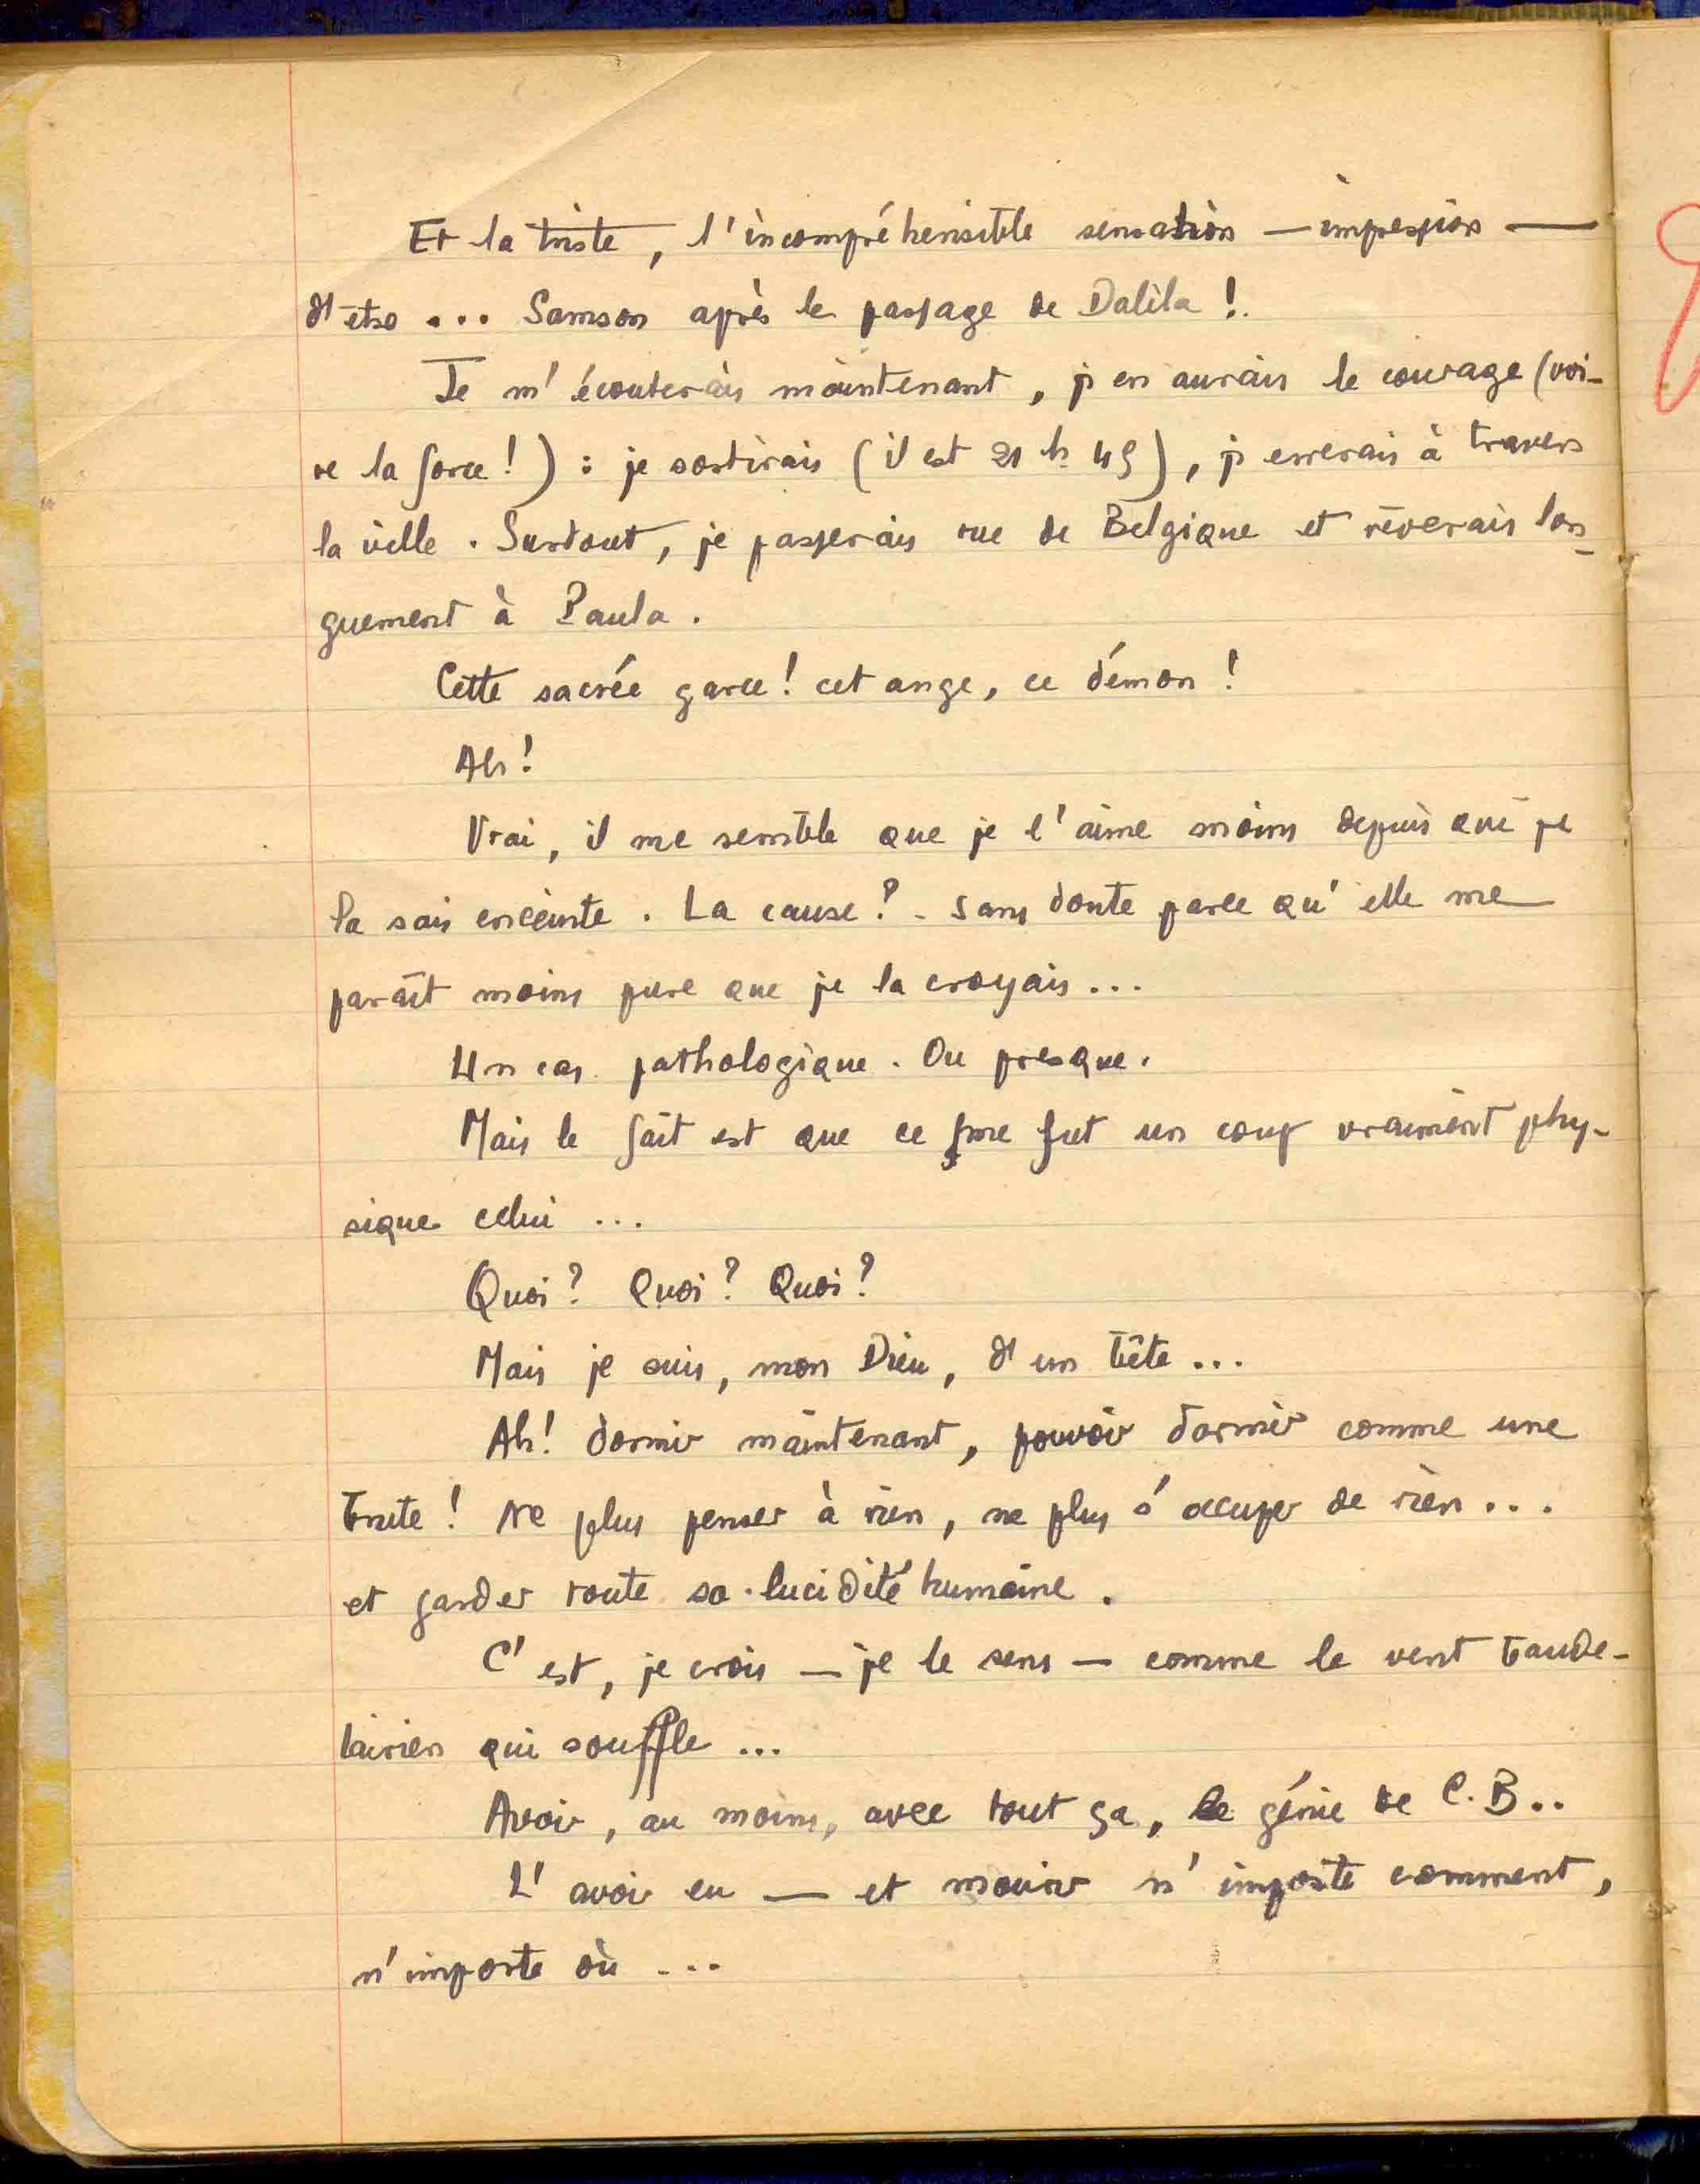 Et la triste, l'incompréhensible sensation — impression —
d'être ... Samson après le passage de Dalila !
Je m'écouterais maintenant, j'en aurais le courage (voi-
re la force !) : je sortirais (il est 21 h 45), j'errerais à travers
la ville. Surtout, je passerais rue de Belgique et rêverais lon-
guement à Paula.
Cette sacrée garce ! cet ange, ce démon !
Ah !
Vrai, il me semble que je l'aime moins depuis que je
la sais enceinte. La cause ? - Sans doute parce qu'elle me
paraît moins pure que je la croyais ...
Un cas pathologique. Ou presque.
Mais le fait est que ce me fut un coup vraiment phy-
sique celui ...
Quoi ? Quoi ? Quoi ?
Mais je suis, mon Dieu, d'un bête ...
Ah ! dormir maintenant, pouvoir dormir comme une
brute ! Ne plus penser à rien, ne plus s'occuper de rien ...
et garder toute sa lucidité humaine.
C'est, je crois — je le sens — comme le vent baude-
lairien qui souffle ...
Avoir, au moins, avec tout ça, le génie de C. B..
L'avoir eu — et mourir n'importe comment,
n'importe où ...